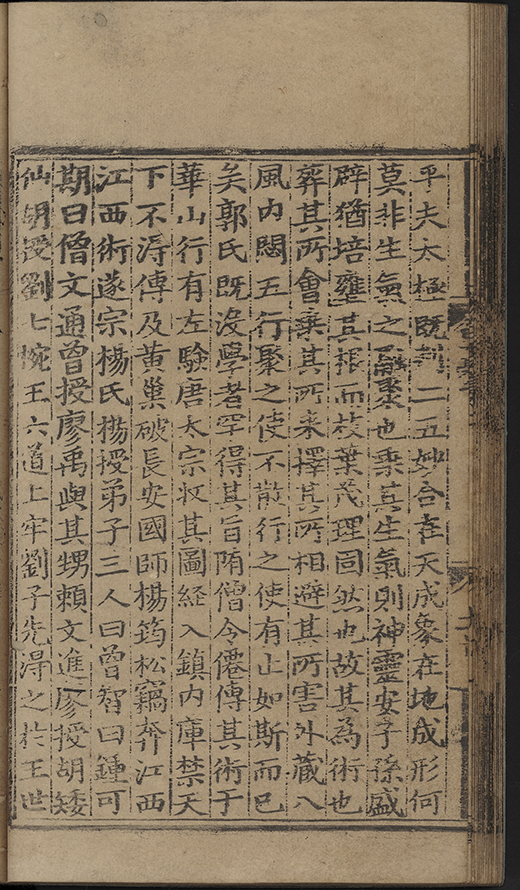 乎夫太極既判二五妙合在天成象在地成形何
莫非生氣之融聚也乘其生氣則神靈安子孫盛
辟猶培壅其根而枝葉茂理固然也故其為術也
葬其所會乘其所来擇其所相避其所害外藏八
風内閟五行聚之使不散行之使有止如斯而已
矣郭氏既沒學者罕得其旨隋僧令僊傳其術于
華山行有左驗唐太宗収其圖経入鎮内庫禁天
下不淂傳及黄巢破長安國師楊筠松竊奔江西
江西術遂宗楊氏楊授弟子三人曰曾智曰鍾可
期曰僧文通曾授廖禹與其甥賴文進廖授胡矮
仙胡授劉七椀王六道上牢劉子先淂之扵王世